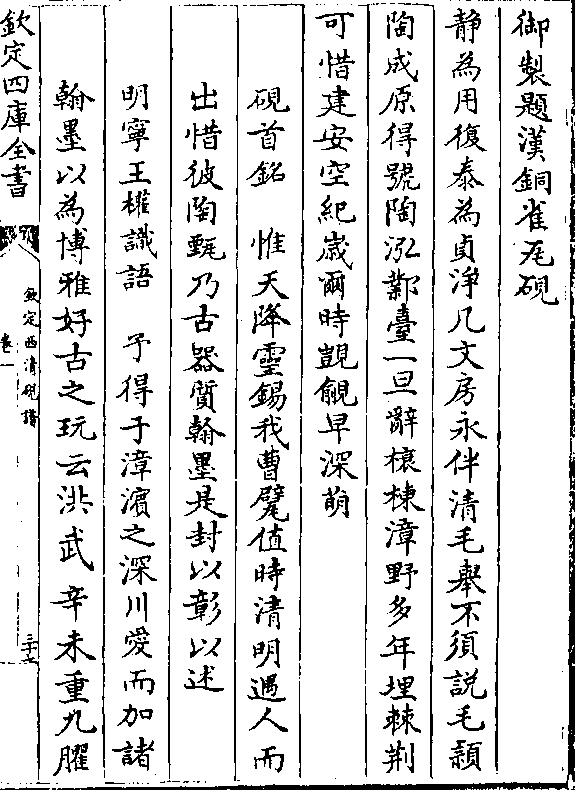 御製題漢銅雀瓦硯
静為用復泰為貞浄几文房永伴清毛舉不須説毛頴
陶成原得號陶泓鄴臺一旦辭榱棟漳野多年埋棘荆
可惜建安空紀嵗爾時覬覦早深萌
硯首銘　惟天降靈錫我曹甓值時清明遇人而
出惜彼陶甄乃古器質翰墨是封以彰以述
明寧王權識語　予得于漳濱之深川愛而加諸
翰墨以為博雅好古之玩云洪武辛未重九臞
欽定四庫全書
欽定西清硯譜
卷一